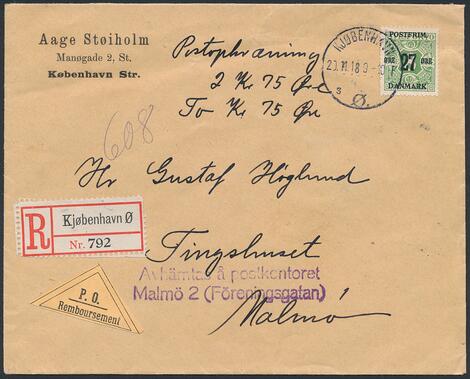 Aage Støiholm
Manøgade 2, St.
København Str.
Postopkrævning
2 Kr 75 Øre
To Kr 75 Øre
KJØBENHAVN
20.11.18 9-10 F
3
Ø.
POSTFRIM.
ØRE 27 ØRE
DANMARK
608
Hr Gustaf Höglund
R
Kjøbenhavn Ø
Nr. 792
Tingshuset
Avhämtas å postkontoret
Malmö 2 (Föreningsgatan)
P. O.
Remboursement
Malmö